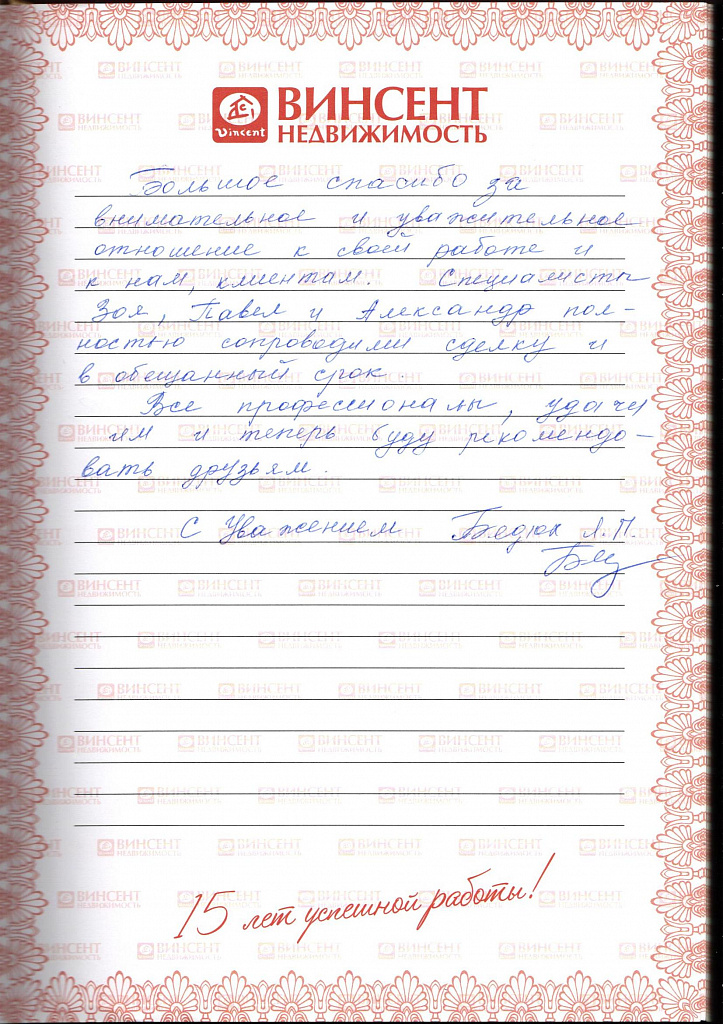 Vincent
ВИНСЕНТ
НЕДВИЖИМОСТЬ
Большое спасибо за
внимательное и уважительное
отношение к своей работе и
к нам, клиентам. Специалисты
Зоя, Павел и Александр пол-
ностью сопроводили сделку и
в обещанный срок.
Все профессионалы, удачи
им и теперь буду рекомендо-
вать друзьям.
С Уважением Бедюх Л.П.
15 лет успешной работы!